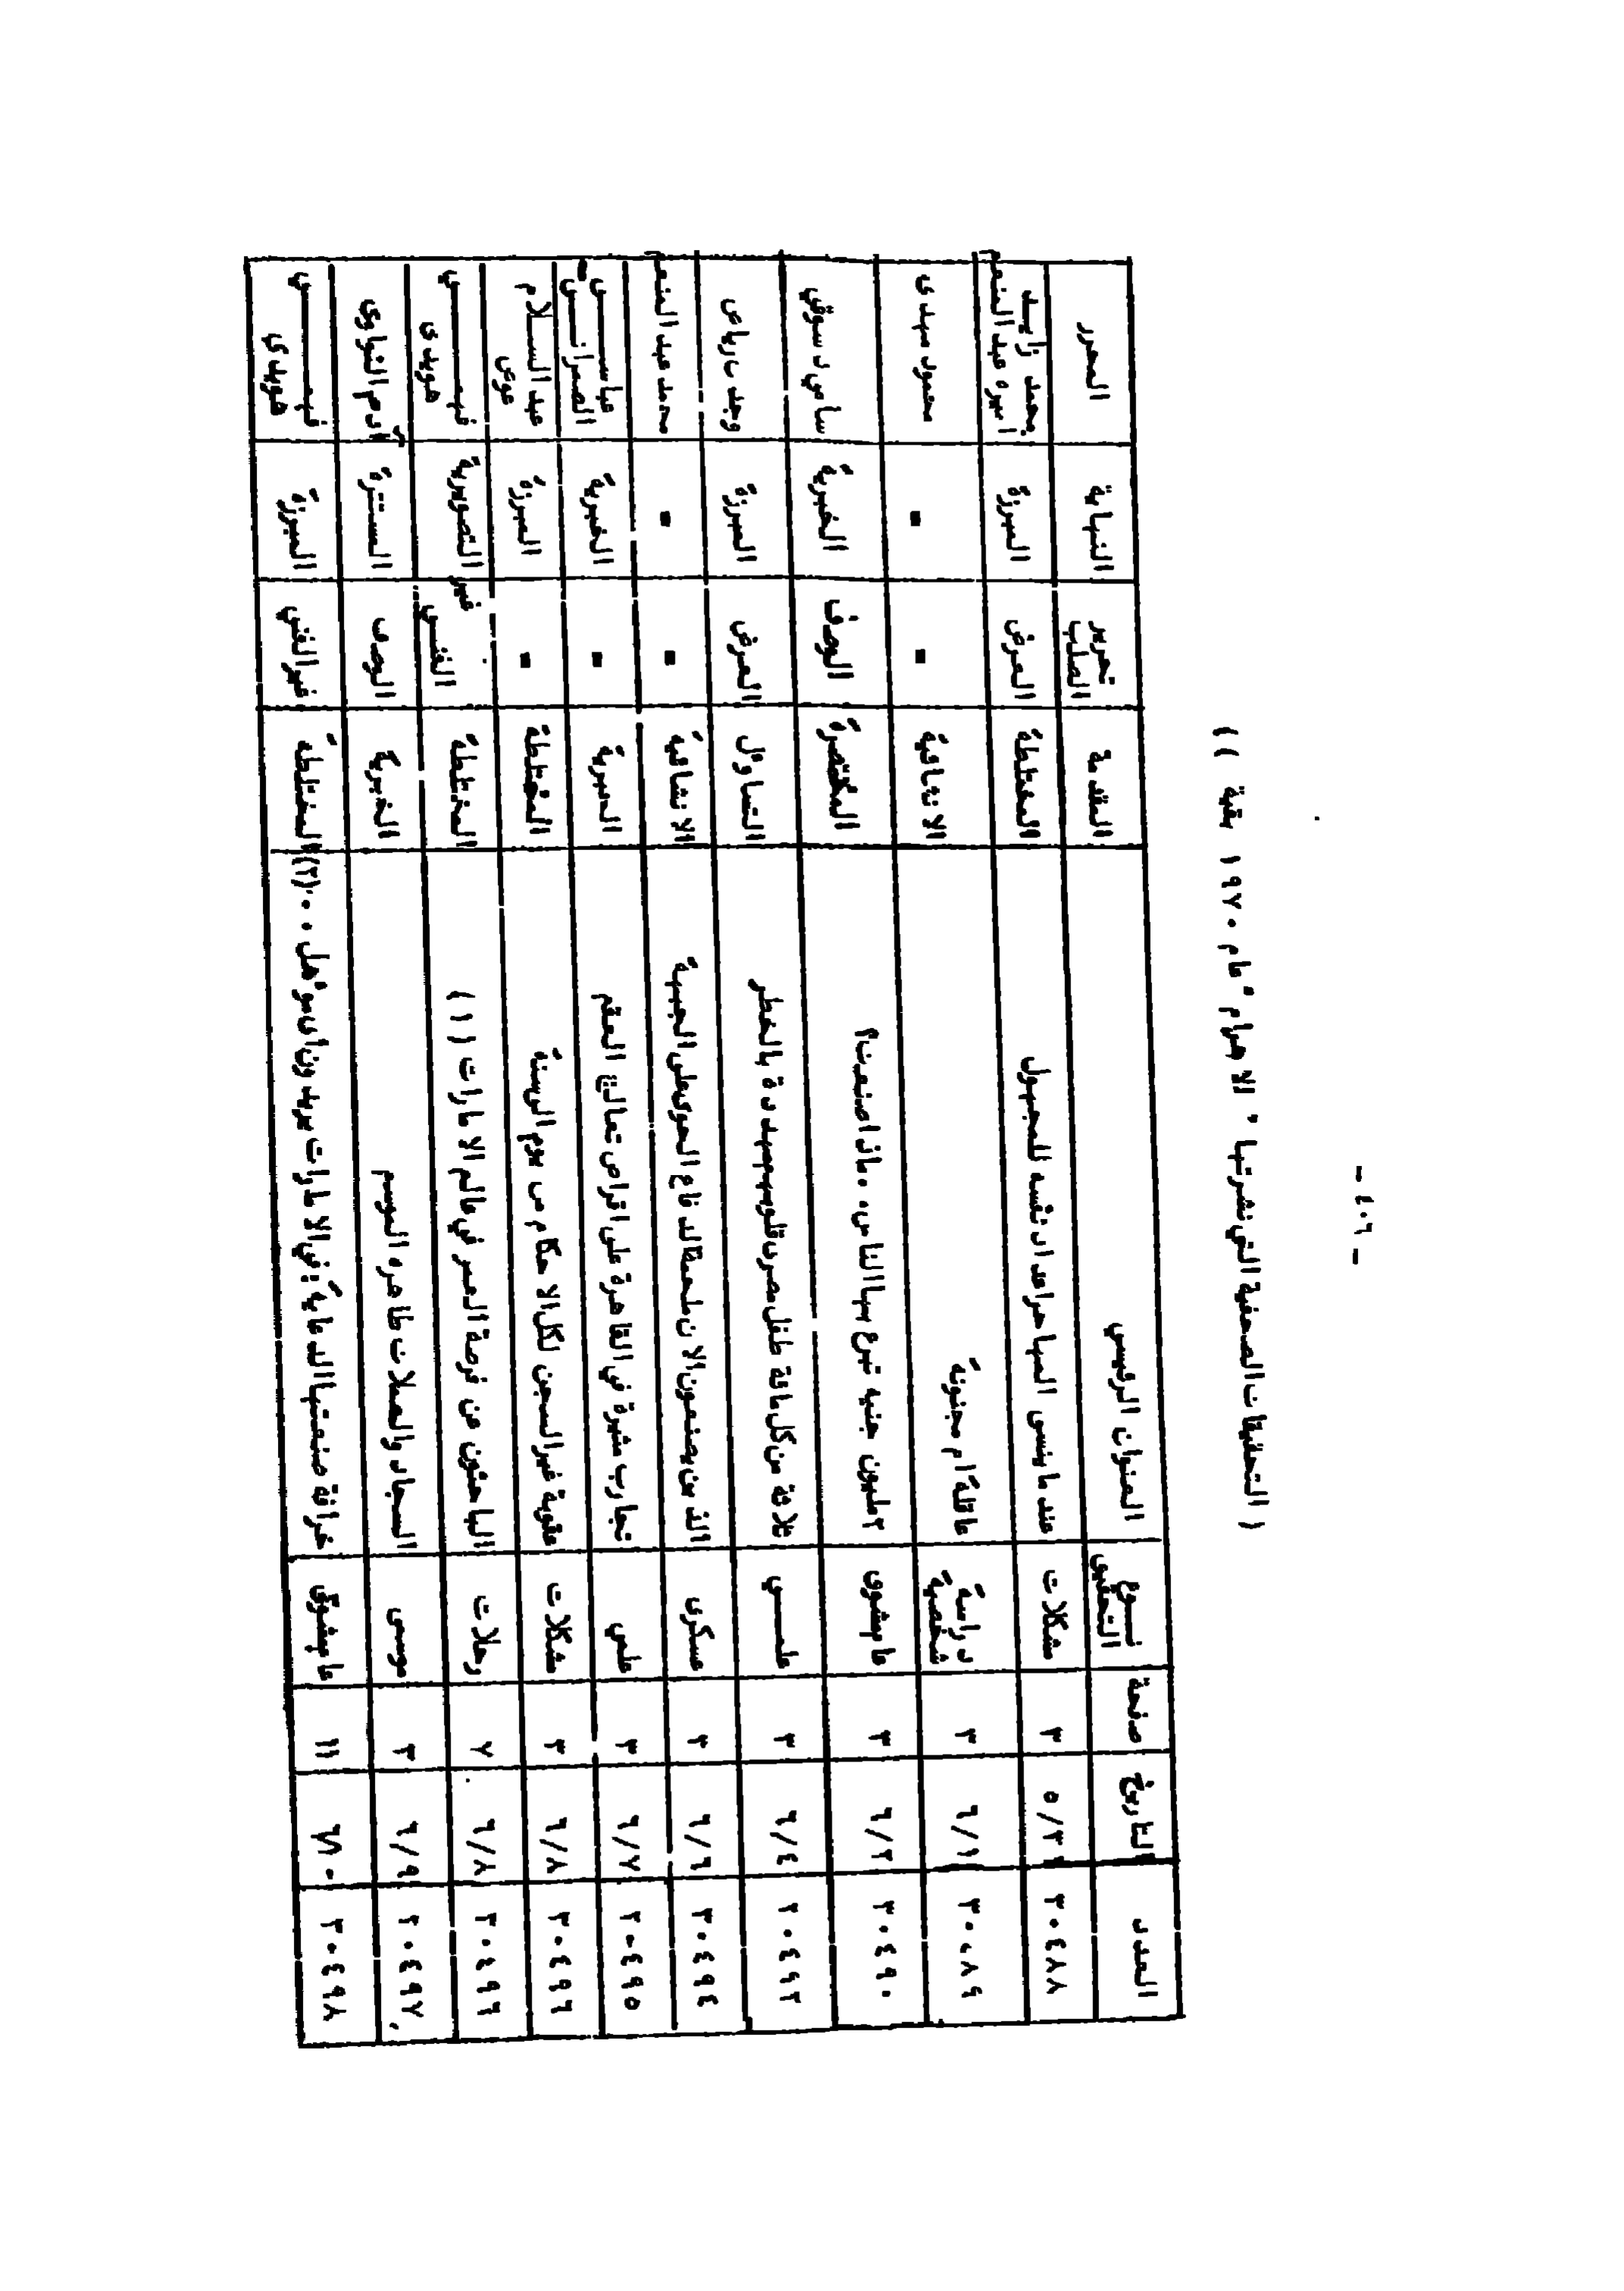 - ٤٠٦ -
( التحقيقات الصحفية التي نشرتها " الاهرام " عام ١٩٧٠ بقية ))
العدد التاريخ صفحة نوع التحقيق العنوان الرئيسي المقدمة تحرير الصلب النهاية المحرر
٣٠٤٨٨ ٥/٣١ ٣ مشكلات عندما ينسى المهاجر اعداد نفسه للمجهول المختلطة العرض المبرزة محمد زايد اميره عبد المنعم
٣٠٤٨٩ ٦/١ ٣ دراسة شخصية عاقلة ام مجنونة الانشائية - - محمود مهدى
٣٠٤٩٠ ٦/٢ ٣ مليون جنيه تبرع بها الناس .. ماذا صنعت؟ الوصف الخبرية سامي دسوقي
٣٠٤٩٢ ٦/٤ ٣ علمي ثلاثة من كل مائة طفل مصرى قلوبهم مهددة بالخطر التساؤل العرض المبرزة وجدى رياض
٣٠٤٩٤ ٦/٦ ٣ عسكرى الذين يصنعون الان ملحمة الدفاع الجوى على الجبهة الانشائية - - محمد عبد المنعم
٣٠٤٩٥ ٦/٧ ٣ علمي تجارب مثيرة في القاهرة على اقراص تعالج العقم الخبرية - الخبرية عباس
٣٠٤٩٦ ٦/٨ ٣ مشكلات عقوبة غير السجن لكل الاحكام من يوم الى سنة المختلطة - المبرزة عبد السلام عوض
٣٠٤٩٦ ٦/٨ ٧ رحلات الباحثون عن فرصة العمر في عالم الامارات (١) المختلطة غير الفني التصويرية فهمي هويدى
٣٠٤٩٧ ٦/٩ ٣ موسمى السجاد والصلات ظاهره الموسم الخبرية الوصف المستترة آدم النواوى
٣٠٤٩٨ ١١ خرافة صنعتها الدعاية : في الامارات يريدون اى مؤهل .. (٢) المختلطة غير الفني المبرزة فهمي هويدي